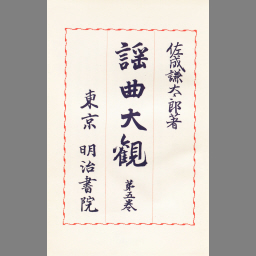 佐成謙太郎著
謡曲大観
第五巻
東京 明治書院